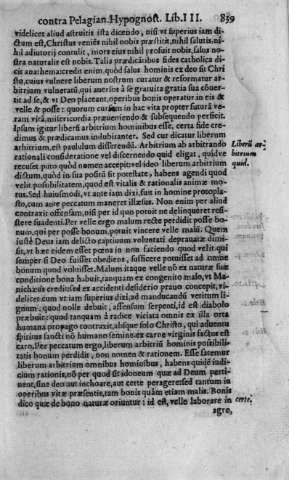 contra Pelagian. Hypognost. Lib. III. 859
videlicet aliud astruitis ista dicendo, nisi ut superius iam di
ctum est, Christus venies nobis præstitit, nihil salutis, ni-
hil adiutorij contulit, mors eius nihil profuit nobis, salus no
stra naturalis est nobis. Talia prædicaribus fides catholica di
cit anathema: credit enim, quòd salus hominis ex deo sit Chri
sto, cuius vulnere liberum nostrum curatur & reformatur ar
bitrium vulneratũ, qui auersos à se gratuita gratia sua conuer-
tit ad se, & vt Deo placent, operibus bonis operatur in eis &
velle & posse: quorum cursum in hac vita propter futurā ve-
ram vitā, misericordia præueniendo & subsequendo perficit.
Ipsum igitur liberū arbitrium hominibus esse, certa fide cre-
dimus & prædicamus indubitanter. Sed cur dicatur liberum
arbitrium, est paululum differendũ. Arbitrium ab arbitrando
rationali consideratione vel discernendo quid eligat, quidve
recuset puto quòd nomen acceperit: ideo liberum arbitrium
dictum, quòd in sua positũ sit potestate, habens agendi quod
velit possibilitatem, quod est vitalis & rationalis animæ mo-
tus. Sed huiusmodi, vt ante iam dixi, fuit in homine protopla-
sto, cum ante peccatum maneret illæsus. Non enim per aliud
contraxit offensam, nisi per id quo potuit ne delinqueret res-
istere suadenti. Per velle ergo malum rectè perdidit posse bo-
num, qui per posse bonum, potuit vincere velle malũ. Quem
iustè Deus iam delicto captiuum voluntati deprauatæ dimi-
sit, vt hæc eidem esset pœna in non faciendo quod velit, qui
semper si Deo fuisset obediens, sufficere potuisset ad omne
bonum quod voluisset. Malum itaque velle nõ ex naturæ suæ
conditione bona habuit, tanquam ex congenito malo, vt Ma-
nichæus est: sed ex accidenti desiderio prauo concepit, vi-
delicet cum vt iam superius dixi, ad manducandũ vetitum li-
gnum, quod nolle debuit, assensum serpenti, id est diabolo
præbuit: quod tanquam à radice vitiata omnis ex illa orta
humana propago contraxit, absque solo Christo, qui aduentu
spiritus sancti nõ humano semine, ex carne virginis factus est
caro. Per peccatum ergo, liberum arbitriũ hominis possibili-
tatis bonum perdidit, non nomen & rationem. Esse fatemur
liberum arbitrium omnibus hominibus, habens quidē iudi-
cium rationis, nõ per quod sit idoneum quæ ad Deum perti-
nent, sine deo aut inchoare, aut certe peragere: sed tantum in
operibus vitæ præsentis, tam bonis quàm etiam malis. Bonis
dico quæ de bono naturæ oriuntur: id est, velle laborare in
agro,
Liberũ ar-
bitrium
quid.
certe.